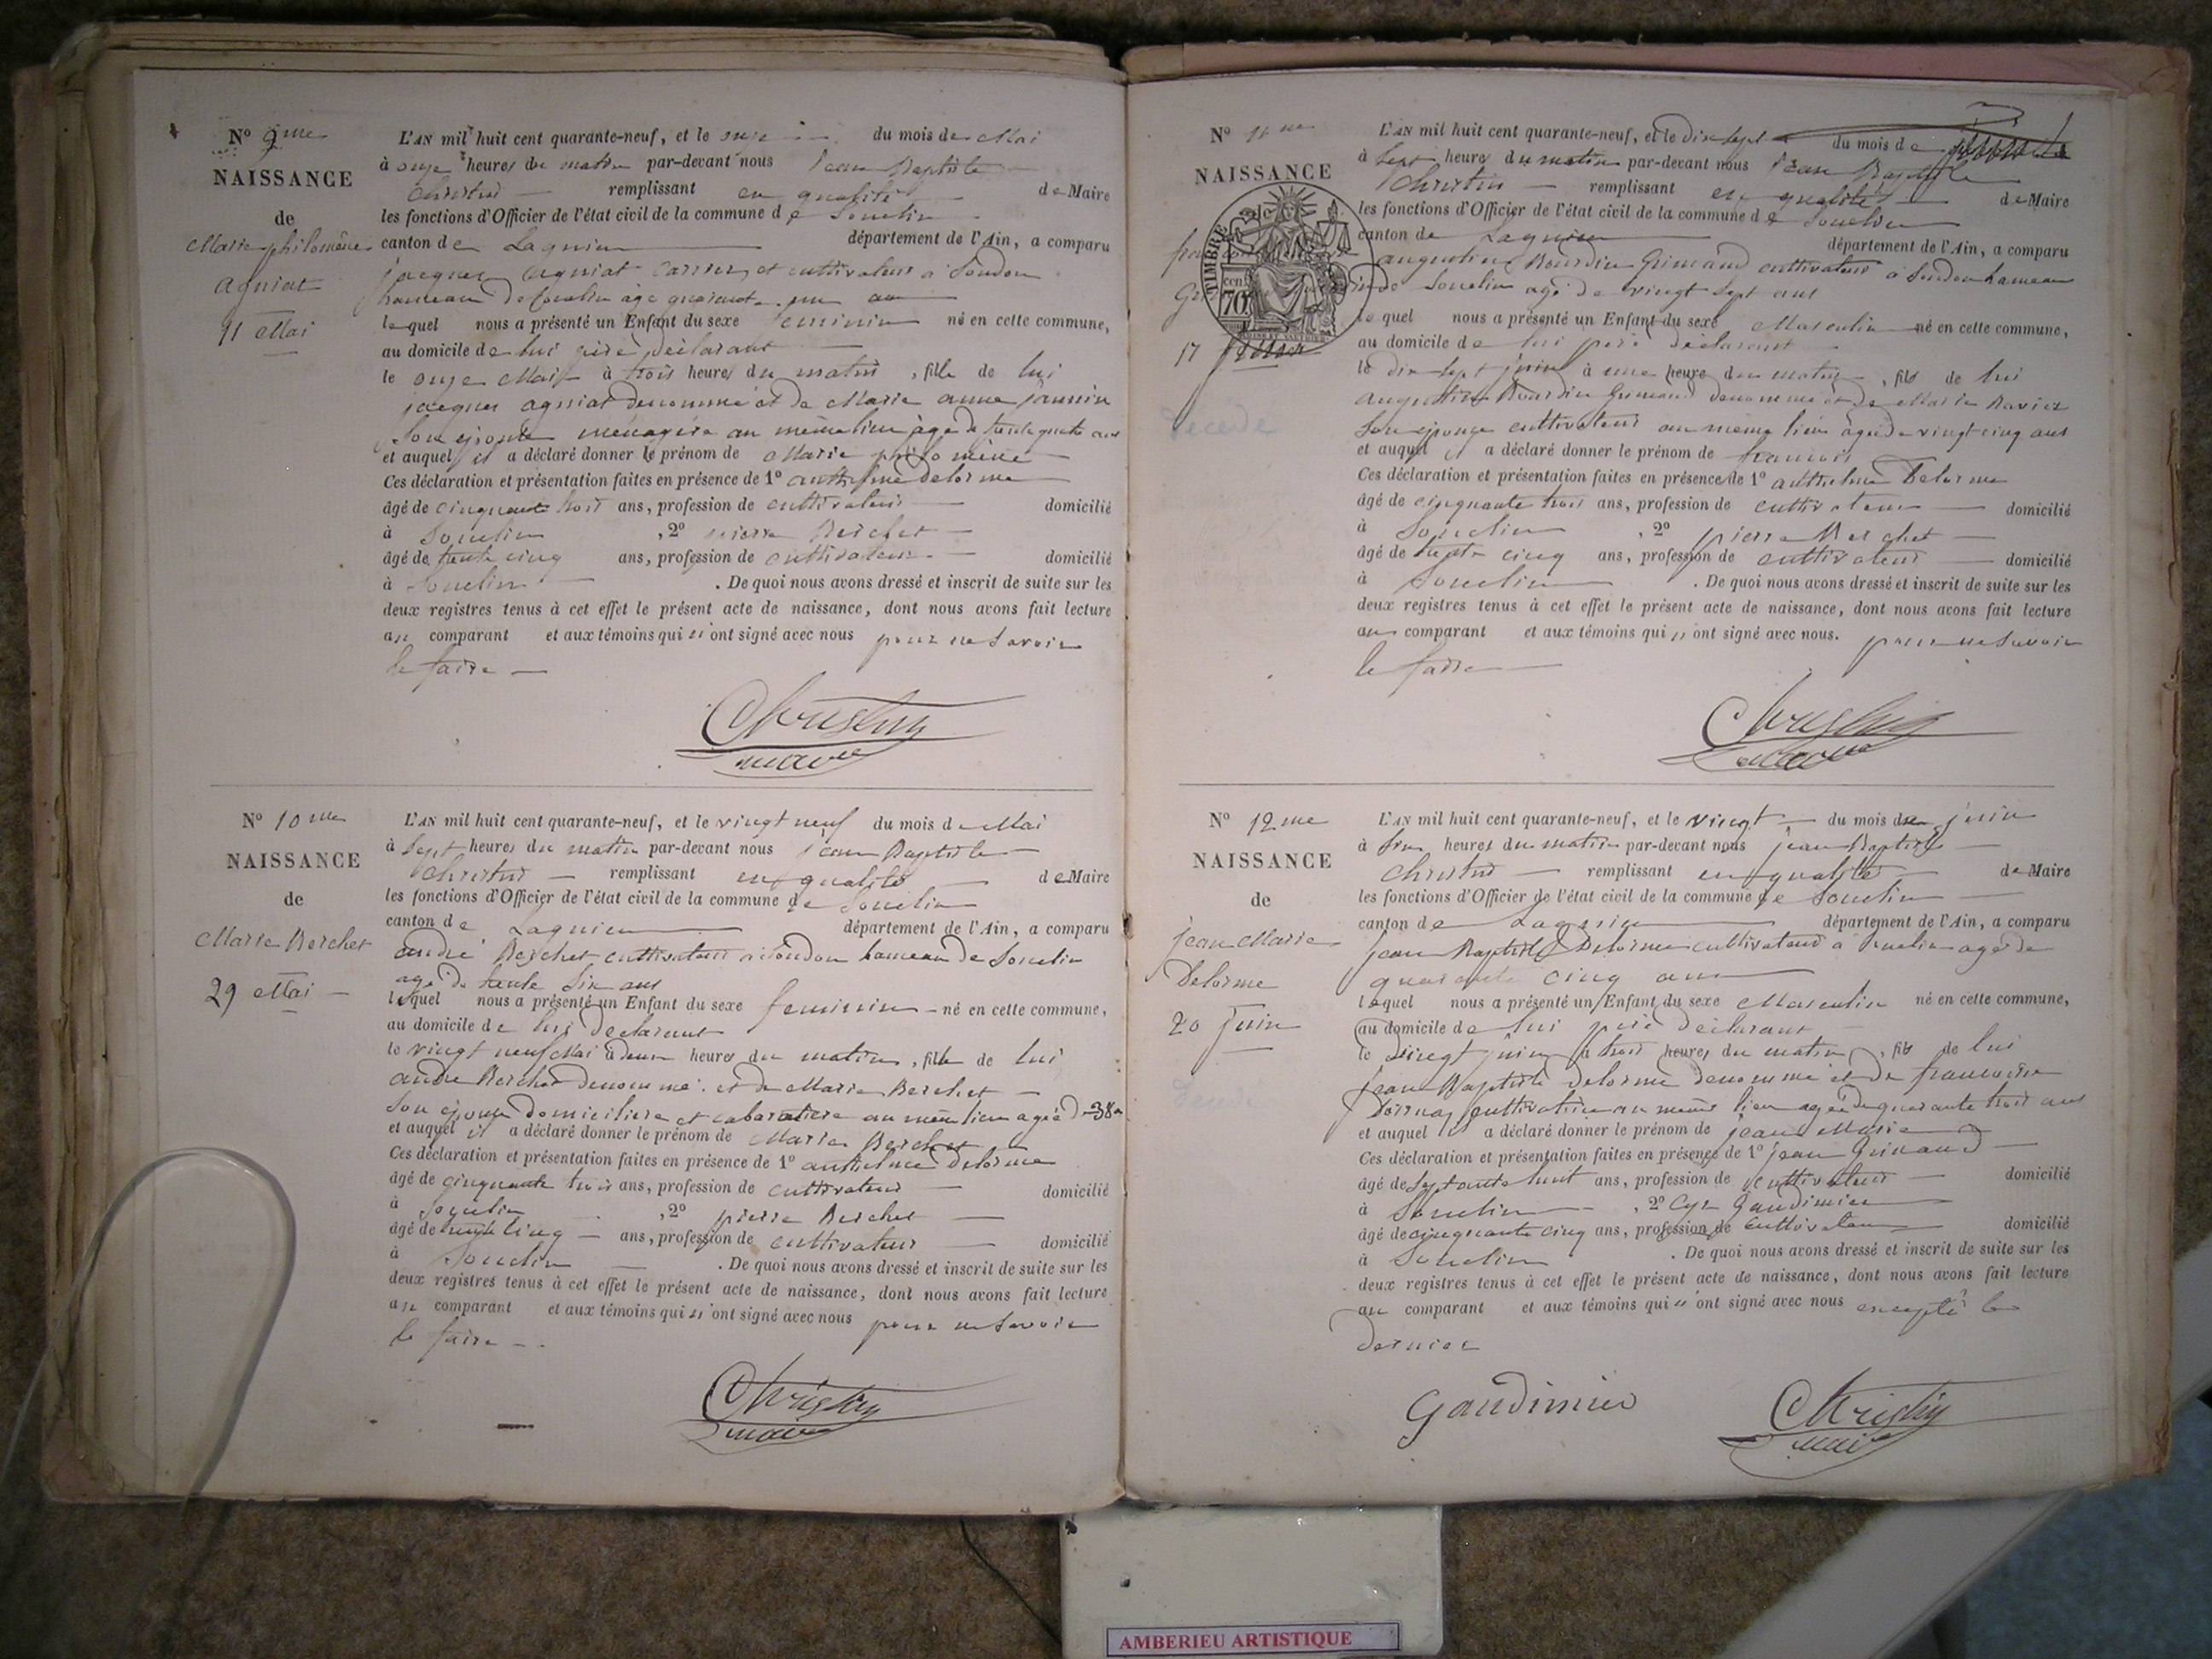 N° 9me
NAISSANCE
de
Marie philomène
agniat
11 Mai
L'AN mil huit cent quarante-neuf, et le onze du mois de Mai
à onze heures du matin par-devant nous Jean Baptiste
Christin remplissant en qualité de Maire
les fonctions d'Officier de l'état civil de la commune de Souclin
canton de Lagnieu département de l'Ain, a comparu
jacques agniat carrier et cultivateur à Soudon
hameau de Souclin âgé quarante un an
lequel nous a présenté un Enfant du sexe feminin né en cette commune,
au domicile de lui père déclarant
le onze Mai à trois heures du matin, fille de lui
jacques agniat denommé et de Marie anne
Son épouse ménagère au même lieu âgé de trente quatre ans
et auquel il a déclaré donner le prénom de Marie philomène
Ces déclaration et présentation faites en présence de 1° anthelme Delorme
âgé de cinquante trois ans, profession de cultivateur domicilié
à Souclin , 2° pierre Berchet
âgé de trente cinq ans, profession de cultivateur domicilié
à Souclin . De quoi nous avons dressé et inscrit de suite sur les
deux registres tenus à cet effet le présent acte de naissance, dont nous avons fait lecture
au comparant et aux témoins qui n'ont signé avec nous pour ne savoir
le faire
Christin
maire
N° 10me
NAISSANCE
de
Marie Berchet
29 Mai
L'AN mil huit cent quarante-neuf, et le vingt neuf du mois de Mai
à Sept heures du matin par-devant nous jean Baptiste
Christin remplissant en qualité de Maire
les fonctions d'Officier de l'état civil de la commune de Souclin
canton de Lagnieu département de l'Ain, a comparu
andré Berchet cultivateur à Soudon hameau de Souclin
agé de trente Six ans
lequel nous a présenté un Enfant du sexe feminin né en cette commune,
au domicile de lui declarant
le vingt neuf Mai à deux heures du matin, fille de lui
andré Berchet denommé et de Marie Berchet
Son épouse domiciliée et cabaretiere au même lieu agée de 38 a
et auquel il a déclaré donner le prénom de Marie Berchet
Ces déclaration et présentation faites en présence de 1° anthelme Delorme
âgé de cinquante trois ans, profession de cultivateur domicilié
à Souclin , 2° pierre Berchet
âgé de trente cinq ans, profession de cultivateur domicilié
à Souclin . De quoi nous avons dressé et inscrit de suite sur les
deux registres tenus à cet effet le présent acte de naissance, dont nous avons fait lecture
au comparant et aux témoins qui n'ont signé avec nous pour ne savoir
le faire
Christin
maire
N° 11me
NAISSANCE
TIMBRE
70
17
Décédé
L'AN mil huit cent quarante-neuf, et le dix Sept du mois de
à Sept heures du matin par-devant nous jean Baptiste
Christin remplissant en qualité de Maire
les fonctions d'Officier de l'état civil de la commune de Souclin
canton de Lagnieu département de l'Ain, a comparu
augustin Bourdin Grimaud cultivateur à Soudon hameau
de Souclin agé de vingt Sept ans
lequel nous a présenté un Enfant du sexe Masculin né en cette commune,
au domicile de lui père declarant
le dix Sept juin à une heure du matin, fils de lui
augustin Bourdin Grimaud denommé et de Marie Ravier
Son épouse cultivateur au même lieu agée de vingt cinq ans
et auquel il a déclaré donner le prénom de françois
Ces déclaration et présentation faites en présence de 1° anthelme Delorme
âgé de cinquante trois ans, profession de cultivateur domicilié
à Souclin , 2° pierre Berchet
âgé de trente cinq ans, profession de cultivateur domicilié
à Souclin . De quoi nous avons dressé et inscrit de suite sur les
deux registres tenus à cet effet le présent acte de naissance, dont nous avons fait lecture
au comparant et aux témoins qui n'ont signé avec nous. pour ne savoir
le faire
Christin
maire
N° 12me
NAISSANCE
de
jean Marie
Delorme
20 juin
L'AN mil huit cent quarante-neuf, et le vingt du mois de juin
à Six heures du matin par-devant nous jean Baptiste
Christin remplissant en qualité de Maire
les fonctions d'Officier de l'état civil de la commune de Souclin
canton de Lagnieu département de l'Ain, a comparu
jean Baptiste Delorme cultivateur à Souclin agé de
quarante cinq ans
lequel nous a présenté un Enfant du sexe Masculin né en cette commune,
au domicile de lui père déclarant
le vingt juin à trois heures du matin, fils de lui
jean Baptiste Delorme denommé et de francoise
cultivatrice au même lieu agée de quarante trois ans
et auquel il a déclaré donner le prénom de jean Marie
Ces déclaration et présentation faites en présence de 1° jean Grimaud
âgé de Septante huit ans, profession de cultivateur domicilié
à Souclin , 2° Cyr Gaudimier
âgé de cinquante cinq ans, profession de cultivateur domicilié
à Souclin . De quoi nous avons dressé et inscrit de suite sur les
deux registres tenus à cet effet le présent acte de naissance, dont nous avons fait lecture
au comparant et aux témoins qui n'ont signé avec nous excepté le
dernier
Gaudimier Christin
maire
AMBERIEU ARTISTIQUE